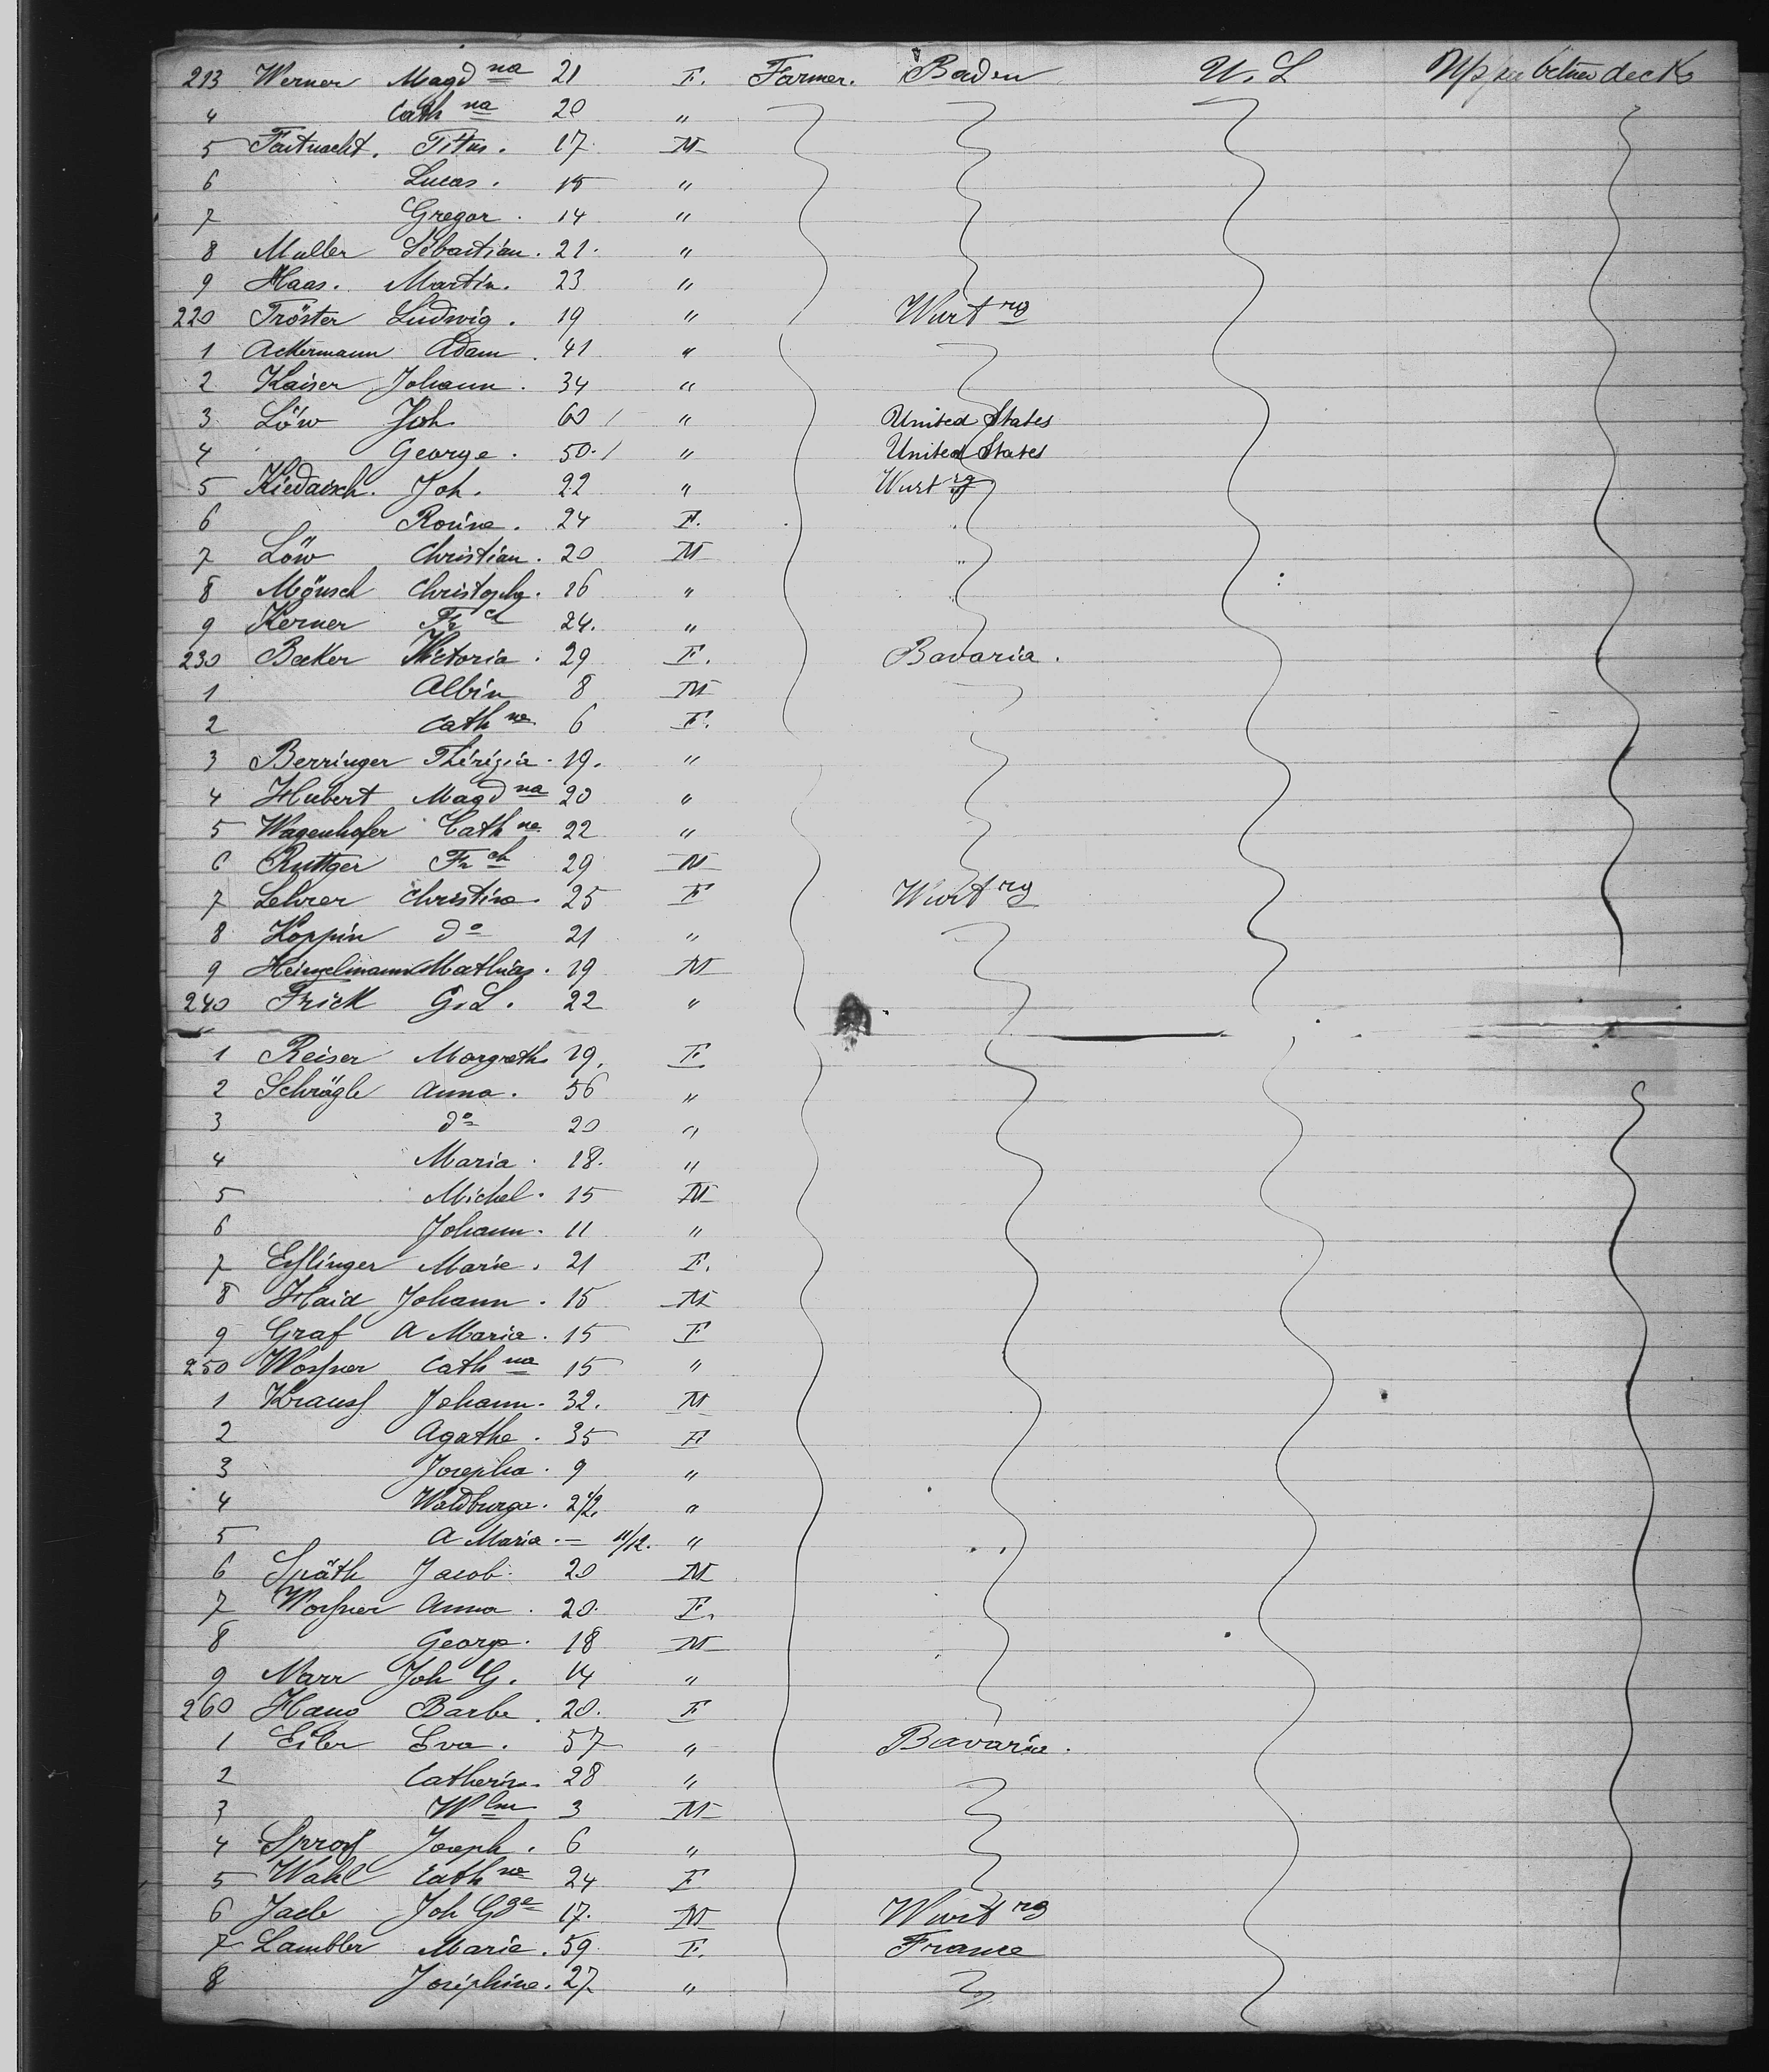 213 Werner Magd na 21 F. Farmer. Baden U. S Upper betwe decks
4 Cath na 20 "
5 Fastnacht. Titus. 17. M
6 Lucas. 15 "
7 Gregor. 14 "
8 Muller Sebastian. 21. "
9 Haas. Martin. 23 "
220 Tröster Ludwig. 19 " Wurt rg
1 Ackermann Adam. 41 "
2 Kaiser Johann. 34 "
3 Löw Joh 60 / " United States
4 George. 50. / " United States
5 Kiedaisch. Joh. 22 " Wurt rg
6 Rosine. 24 F. "
7 Löw Christian. 20 M "
8 Mönsch Christoph. 26 "
9 Kerner 24. "
230 Becker Victoria. 29 F. Bavaria.
1 Albin 8 M
2 Cath ne 6 F.
3 Berringer Thérézia. 19. "
4 Hubert Magd na 20 "
5 Wagenhofer Cath ne 22 "
6 Ruttger Fr ch 29 M
7 Lehrer Christine. 25 F Wurt rg
8 Koppin do 21 "
9 Heinzelmann Mathias. 19 M
240 Frick G. L. 22 "
1 Reiser Margreth 19. F
2 Schrägle Anna. 56 "
3 do 20 "
4 Maria. 18. "
5 Michel. 15 M
6 Johann. 11 "
7 Eßlinger Marie. 21 F.
8 Haid Johann. 15 M
9 Graf A Maria. 15 F
250 Woßner Cath na 15 "
1 Krauss Johann. 32. M
2 Agathe. 35 F
3 Josepha. 9 "
4 Waldburga. 2 1/2 "
5 A Maria. — 11/12. "
6 Späth Jacob. 20 M
7 Woßner Anna. 20. F.
8 George. 18 M
9 Marr Joh G. 14 "
260 Haug Barbe. 20. F
1 Eiler Eva. 57 " Bavaria.
2 Catherin. 28 "
3 W lm 3 M
4 Joseph. 6 "
5 Wahl Cath ne 24 F
6 Joh Gge 17. M Wurt rg
7 Lambler Marie. 59. F. France
8 Joséphine. 27 "